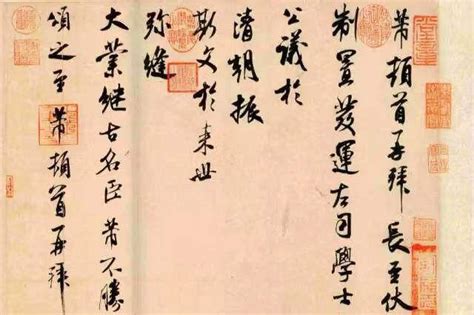 芾頓首再拜長至伏
制置發運左司學士
公議於
清朝振
斯文於来世
弥縫
大業継古名臣芾不勝
頌之至芾頓首再拜